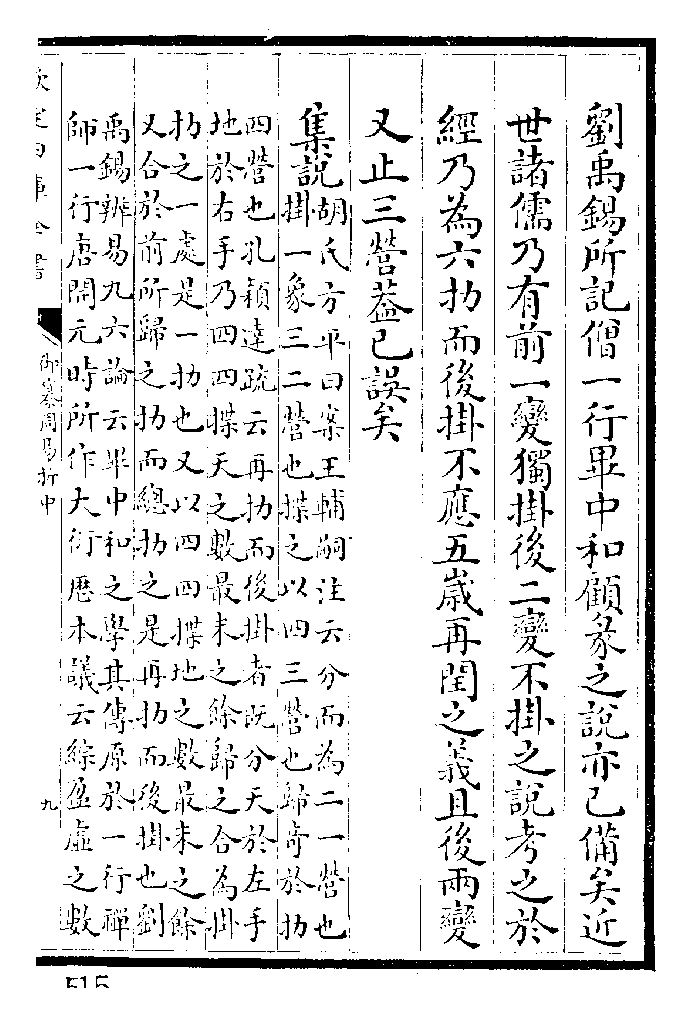 劉禹錫所記僧一行畢中和顧彖之說亦已備矣近
世諸儒乃有前一變獨掛後二變不掛之說考之於
經乃為六扐而後掛不應五歲再閏之義且後兩變
又止三營蓋已誤矣
集說胡氏方平曰案王輔嗣注云分而為二一營也
掛一象三二營也揲之以四三營也歸奇於扐
四營也孔穎達疏云再扐而後掛者既分天於左手
地於右手乃四四揲天之數最末之餘歸之合為掛
扐之一處是一扐也又以四四揲地之數最末之餘
又合於前所歸之扐而總扐之是再扐而後掛也劉
禹錫辨易九六論云畢中和之學其傳原於一行禪
師一行唐開元時所作大衍厯本議云綜盈虛之數
欽定四庫全書
御纂周易折中
九
515